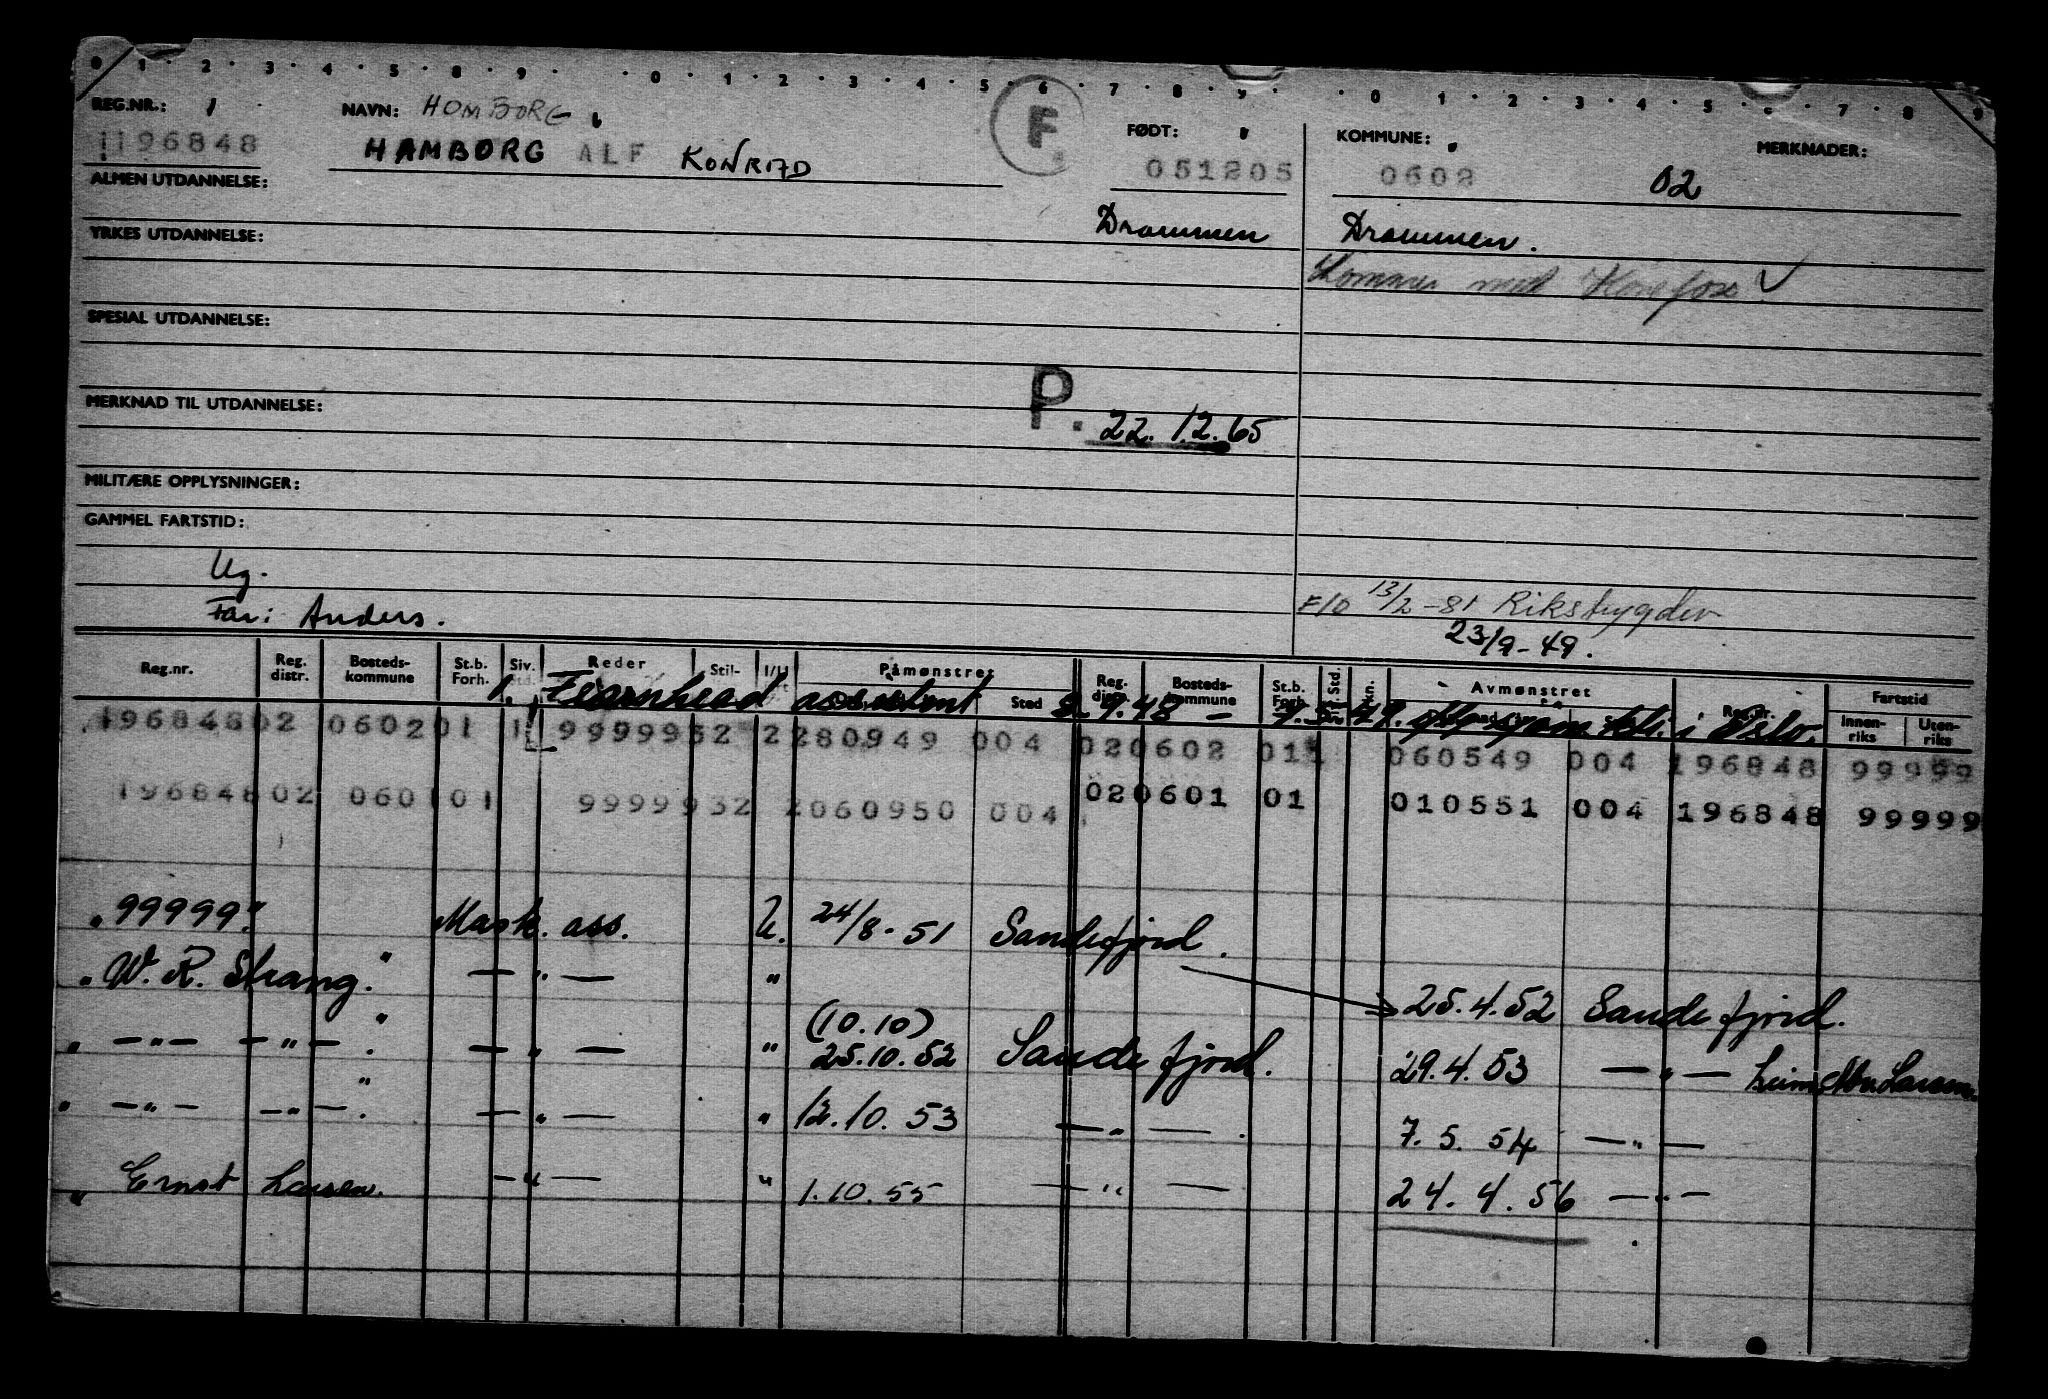 0 1 2 3 4 5 8 9 0 1 2 3 4 5 6 7 8 9 0 1 2 3 4 5 6 7 8 9
REG.NR.: 1 NAVN: HOMBORG F FØDT: KOMMUNE: MERKNADER:
196848 HAMBORG ALF KONRAD 051205 0602 02
ALMEN UTDANNELSE:
Drammen Drammen.
YRKES UTDANNELSE:
SPESIAL UTDANNELSE:
P. 22.12.65
MERKNAD TIL UTDANNELSE:
MILITÆRE OPPLYSNINGER:
GAMMEL FARTSTID:
Ug.
F/O 13/2-81 Rikstrygdev
Far: Anders.
23/9-49.
Reg.nr. Reg. distr. Bosteds-kommune St.b. Forh. Siv. Std. Reder Stil- I/U Påmønstret Sted Reg. distr. Bosteds-kommune St.b. Forh. Std. Avmønstret Reg.nr. Fartstid Innen-riks Uten-riks
1. Fearnhead assistent 2.9.48 - i Oslo.
196848 02 0602 01 1 9999952 2 280949 004 02 0602 01 060549 004 196848 99999
196848 02 060101 9999932 2 060950 004 02 0601 01 010551 004 196848 99999
"99999" Mask. ass. U. 24/8-51 Sandefjord.
"W. R. Strang." — " — " 25.4.52 Sandefjord.
" — " — — " — " . — " — " (10.10) 25.10.52 Sandefjord. 29.4.53 — " —
" — " — — " — . — " — " 12.10.53 — " — . 7.5.54 — " —
" Ernst Larsen. — " — " 1.10.55 — " — 24.4.56 — " —